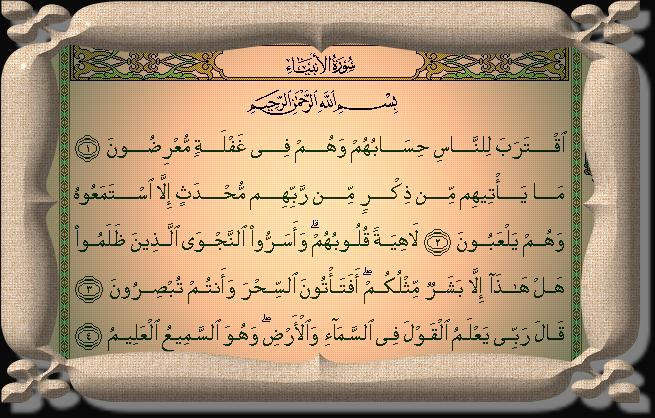 سُورَةُ الأَنبِيَاءِ
بِسْمِ اللَّهِ الرَّحْمَٰنِ الرَّحِيمِ
ٱقْتَرَبَ لِلنَّاسِ حِسَابُهُمْ وَهُمْ فِى غَفْلَةٍ مُّعْرِضُونَ ١
مَا يَأْتِيهِم مِّن ذِكْرٍ مِّن رَّبِّهِم مُّحْدَثٍ إِلَّا ٱسْتَمَعُوهُ
وَهُمْ يَلْعَبُونَ ٢ لَاهِيَةً قُلُوبُهُمْ ۗ وَأَسَرُّوا۟ ٱلنَّجْوَى ٱلَّذِينَ ظَلَمُوا۟
هَلْ هَٰذَآ إِلَّا بَشَرٌ مِّثْلُكُمْ ۖ أَفَتَأْتُونَ ٱلسِّحْرَ وَأَنتُمْ تُبْصِرُونَ ٣
قَالَ رَبِّى يَعْلَمُ ٱلْقَوْلَ فِى ٱلسَّمَآءِ وَٱلْأَرْضِ ۖ وَهُوَ ٱلسَّمِيعُ ٱلْعَلِيمُ ٤